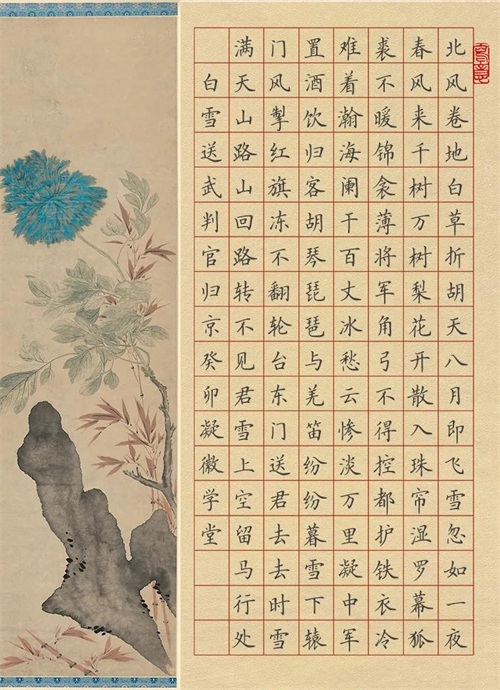 北风卷地白草折胡天八月即飞雪忽如一夜
春风来千树万树梨花开散入珠帘湿罗幕狐
裘不暖锦衾薄将军角弓不得控都护铁衣冷
难着瀚海阑干百丈冰愁云惨淡万里凝中军
置酒饮归客胡琴琵琶与羌笛纷纷暮雪下辕
门风掣红旗冻不翻轮台东门送君去去时雪
满天山路山回路转不见君雪上空留马行处
白雪送武判官归京癸卯凝徽学堂